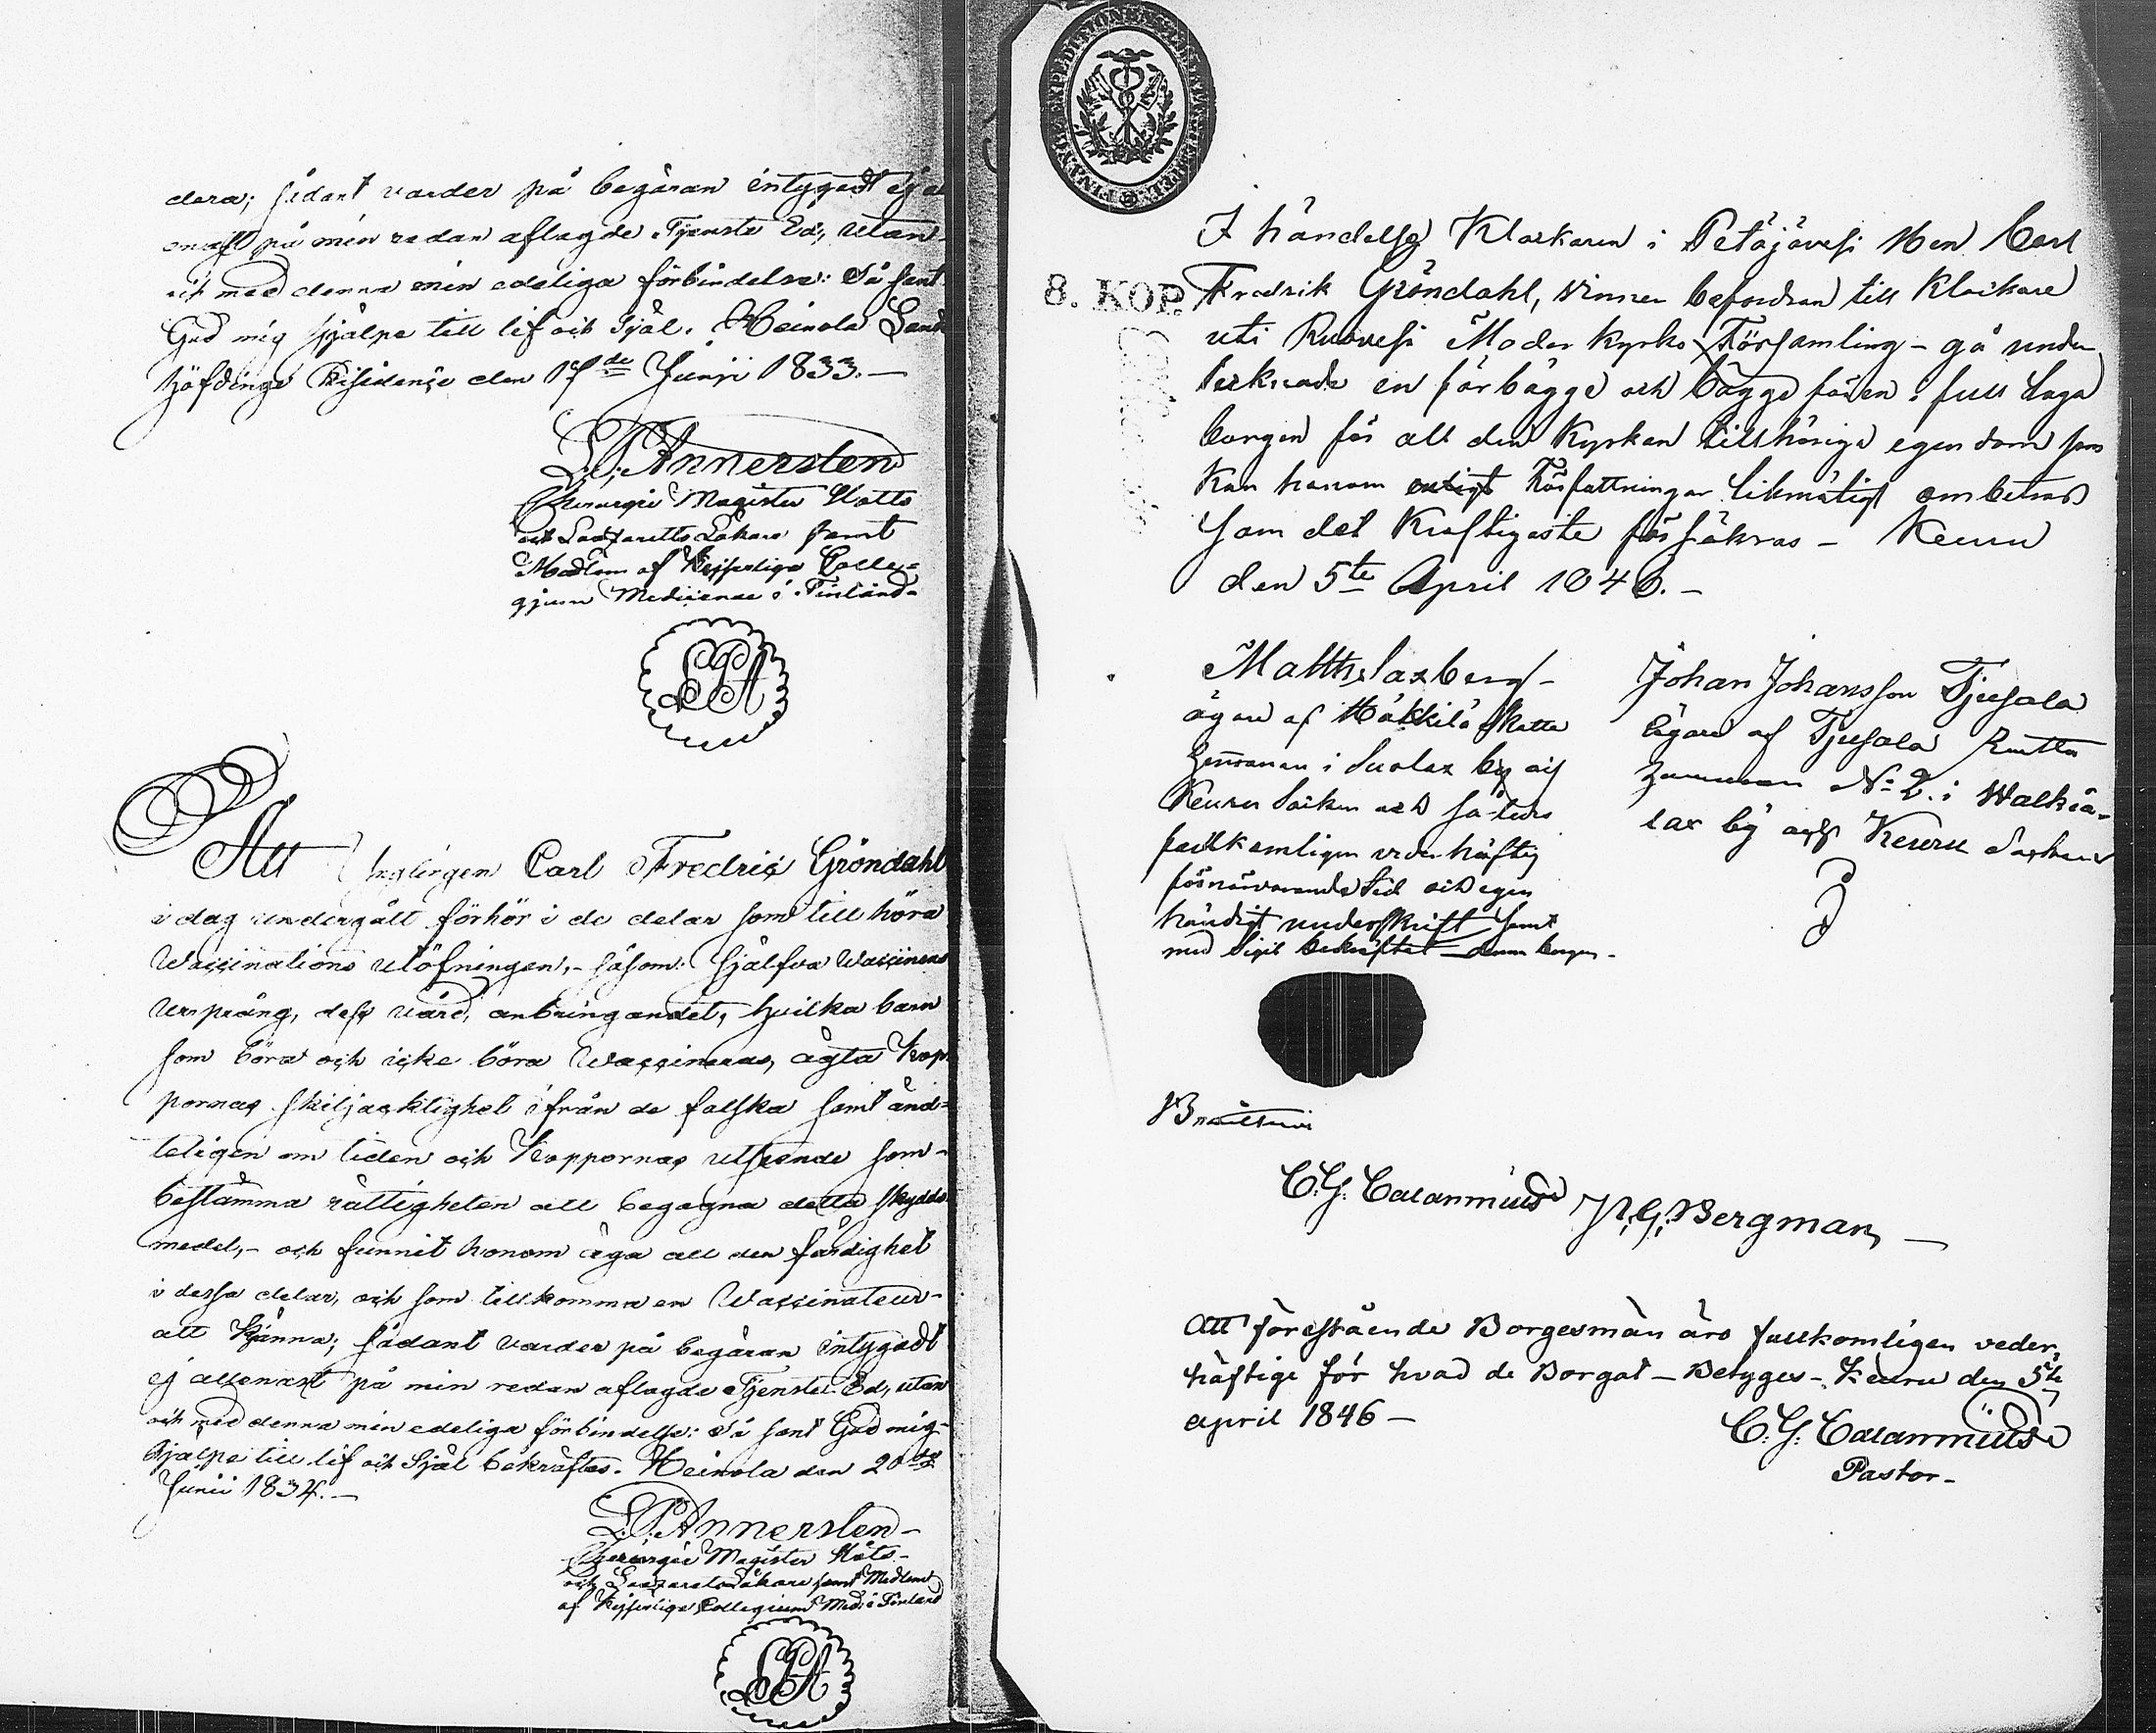 dera; sådant varder på begäran intygadt ej al
enast på min redan aflagde Tjenste Ed, utan
ock med denna min edeliga förbindelse: Så sant
Gud mig hjälpe till lif och Själ. Heinola Lands
höfdinge Residence den 17de Junii 1833.—
L.P. Annersten
Chirurgiæ Magister Stats
och Lazaretts Läkare samt
Medlem af Kejserliga Colle-
gium Medicinae i Finland-
LPA
Att Ynglingen Carl Fredric Gröndahl
i dag undergått förhör i de delar som till höra
Waccinations utöfningen,- såsom: Sjelfva Waccinens
ursprång, dess vård, anbringandet, hvilka barn
som böra och icke böra Waccineras, ägta Kop-
pornas skiljacktighet ifrån de falska samt änd=
teligen om tiden och Koppornas utseende som-
bestämma rättigheten att begagna detta skydds
medel,- och funnit honom äga all den färdighet
i dessa delar, och som tillkomma en Waccinateur-
att känna; sådant varder på begäran intygadt
ej allenast på min redan aflagde Tjenste-Ed, utan
och med denna min edeliga förbindelse: Så sant Gud mig
hjälpe till lif och Själ bekräftas. Heinola den 20de
Junii 1834.—
L.P. Annersten-
Chirurgiæ Magister Stats-
och Lazaretsläkare samt Medlem
af Kejserliga Collegium Med: i Finland
LPA
FINANCE EXPEDITIONEN
8. KOP.
I händelse Klockaren i Petäjävesi Herr Carl
Fredrik Gröndahl, vinner befordran till Klockare
uti Ruovesi Moder Kyrko Församling - gå under
tecknade en för bägge och bägge för en i full laga
borgen för all den Kyrkan tillhöriga egendom som
kan honom Författningar likmätigt ombetros
som det kraftigaste försäkras - Keuru
den 5te April 1846.-
Matths Saxberg-
ägare af Häkkilä Skatte
hemman i Suolax by af
Keuru Socken och så-
fullkomligen vederhäftig
förnärvarande tid och egen
händigt underskrift samt
med Sigil bekräftat denna borgen-
Johan Johansson Tjusala
Ägare af Tjusala Rusta
hemman No 2. i Walkea-
lax by och Keuru Socken
Bevittna
C:G: Calamnius
J.G. Bergman,—
Att föreståënde Borgesmän äro fullkomligen veder,
häftige för hvad de Borgat - Betyges - Keuru den 5te
april 1846 —
C:G: Calamnius
Pastor-